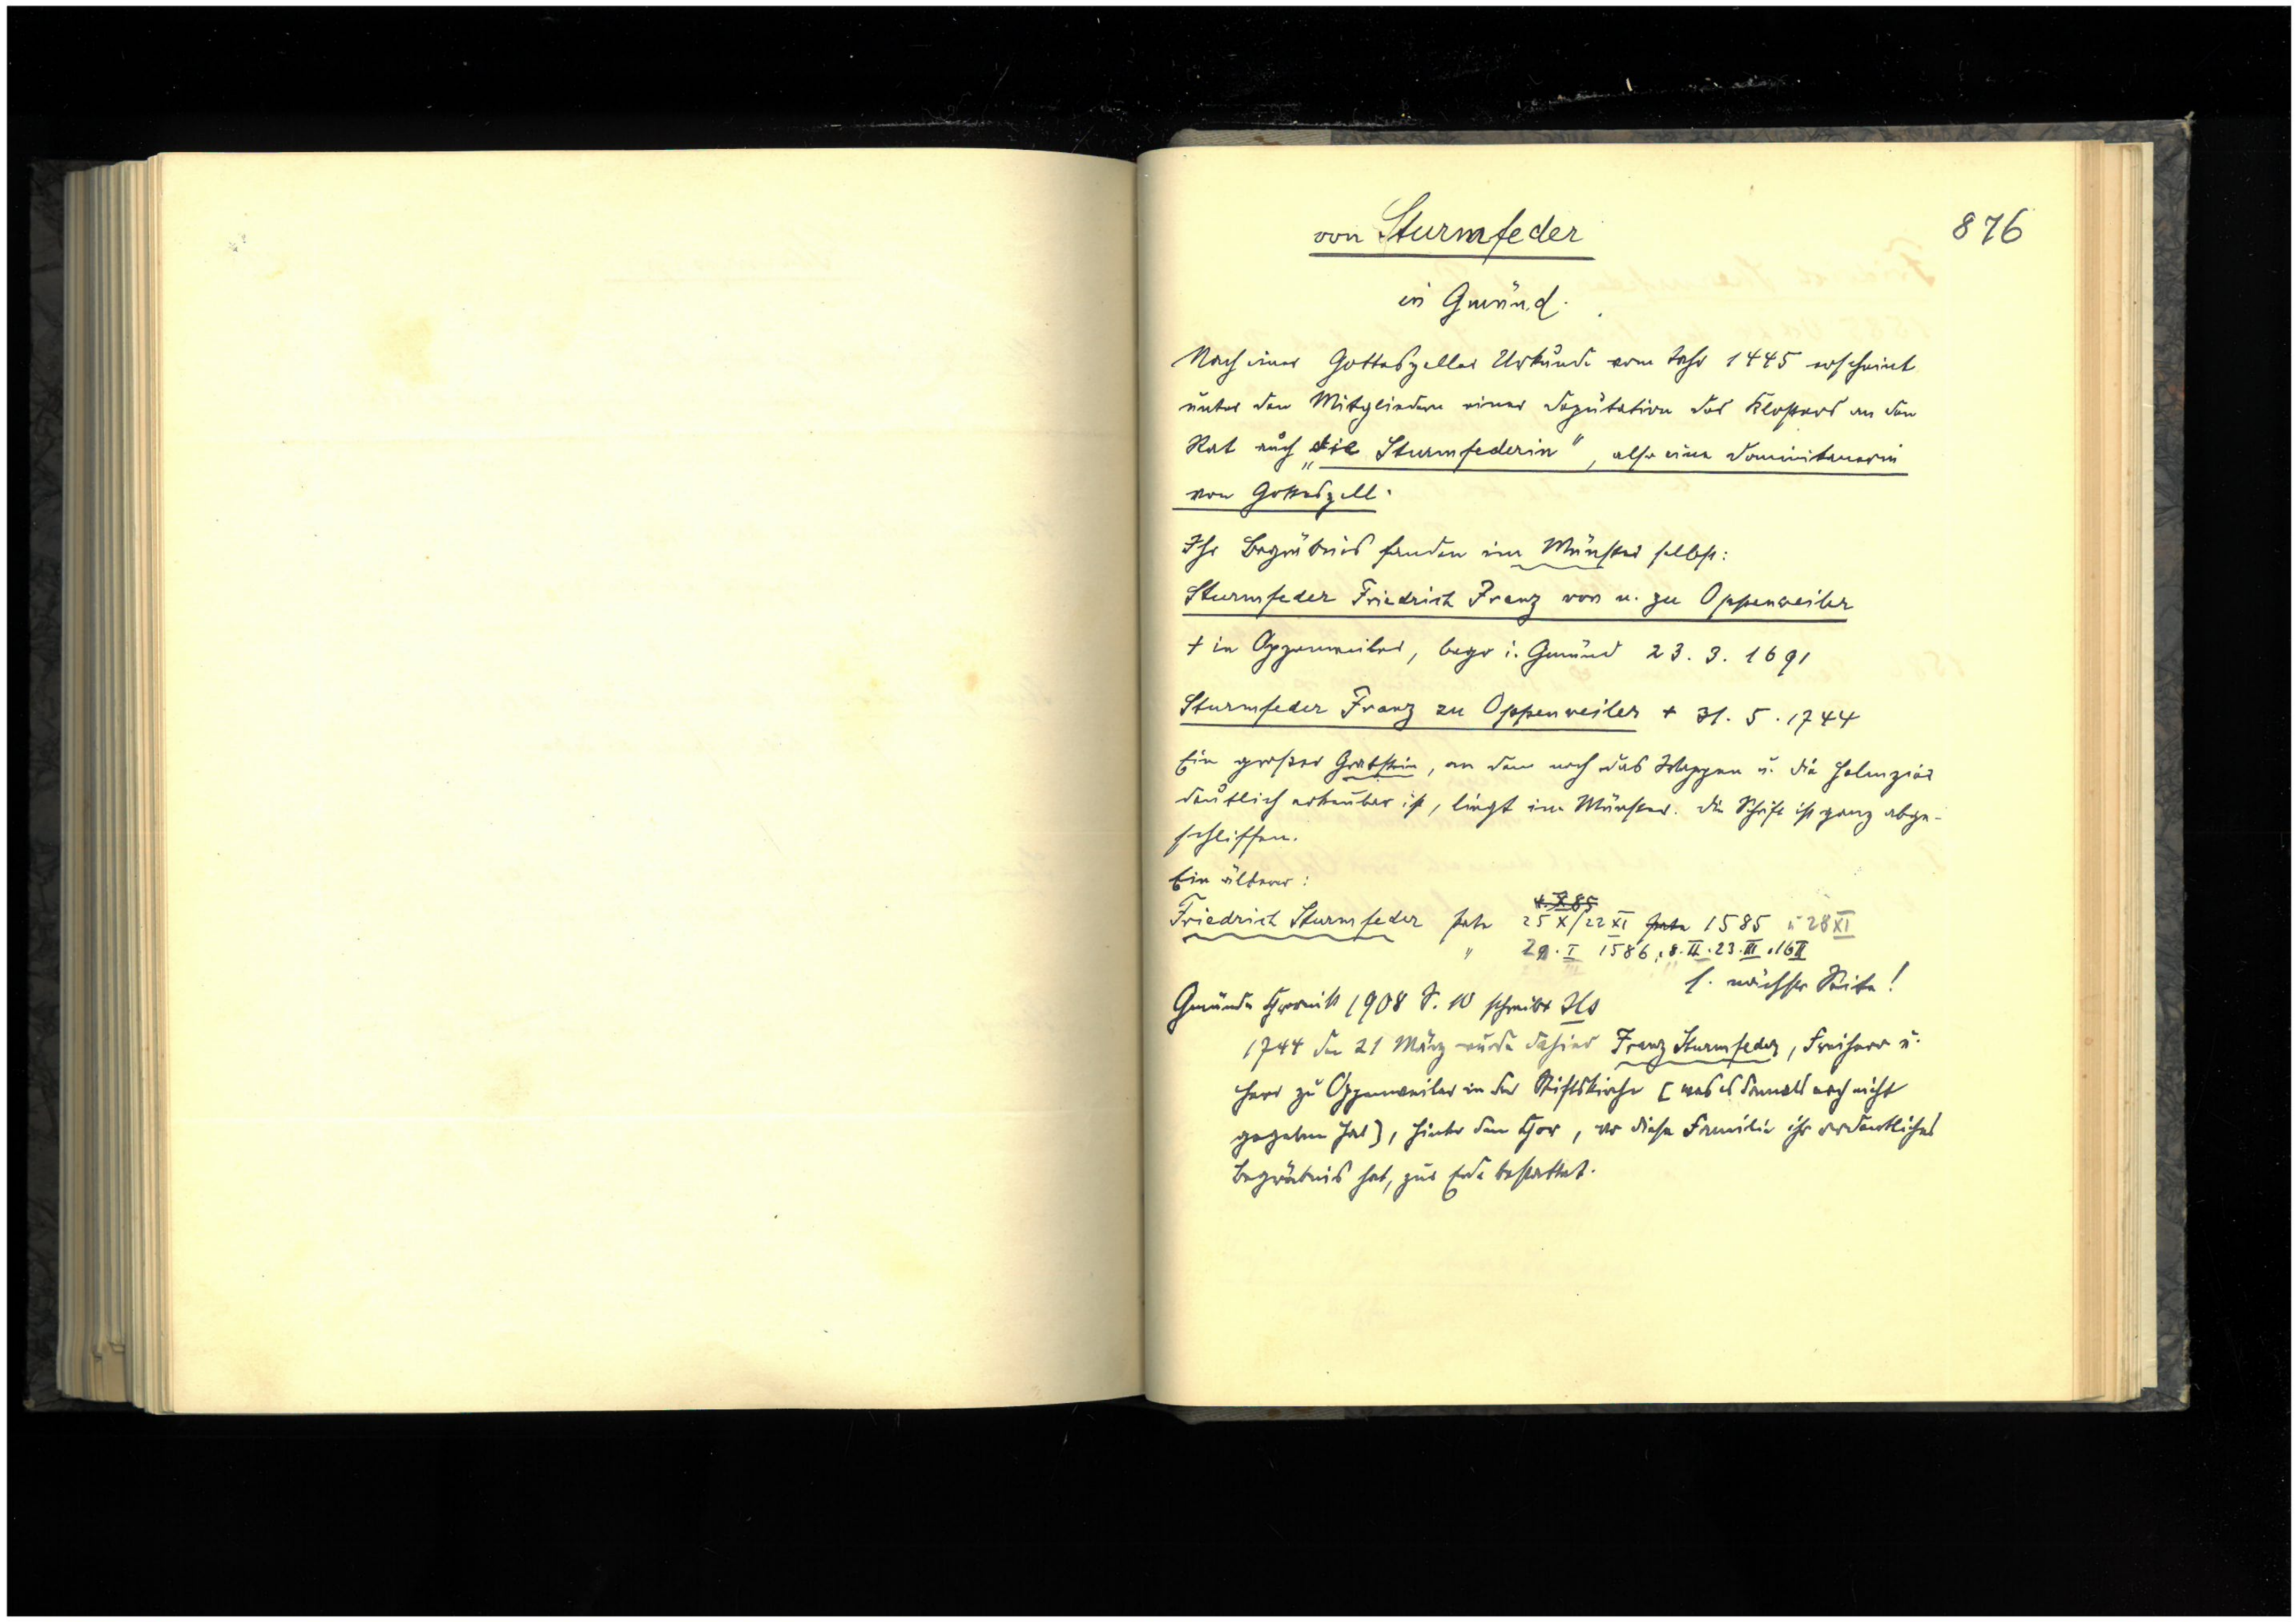 876
von Sturmfeder
in Gmünd.
Nach einer Gotteszeller Urkunde vom Jahr 1445 erscheint
unter den Mitgliedern einer Deputation des Klosters an den
Rat auch „die Sturmfederin", also eine Dominikanerin
von Gotteszell.
Ihr Begräbnis fanden im Münster selbst:
Sturmfeder Friedrich Franz von u. zu Oppenweiler
+ in Oppenweiler, begr i. Gmünd 23. 3. 1691
Sturmfeder Franz zu Oppenweiler + 31. 5. 1744
Ein großer Grabstein, an dem noch das Wappen u. die Helmzier
deutlich erkennbar ist, liegt im Münster. Die Schrift ist ganz abge-
schliffen.
Ein älterer:
Friedrich Sturmfeder Pate 25 X/22 XI Pate 1585 u 28 XI
" 29. I 1586, 8. II. 23. III. 16 II
s. nächste Seite!
Gmünder Chronik 1908 S. 10 schreibt
1744 den 21 März wurde dahier Franz Sturmfeder, Freiherr u.
Herr zu Oppenweiler in der Stiftskirche [was es damals noch nicht
gegeben hat], hinter dem Chor, wo diese Familie ihr ordentliches
Begräbnis hat, zur Erde bestattet.